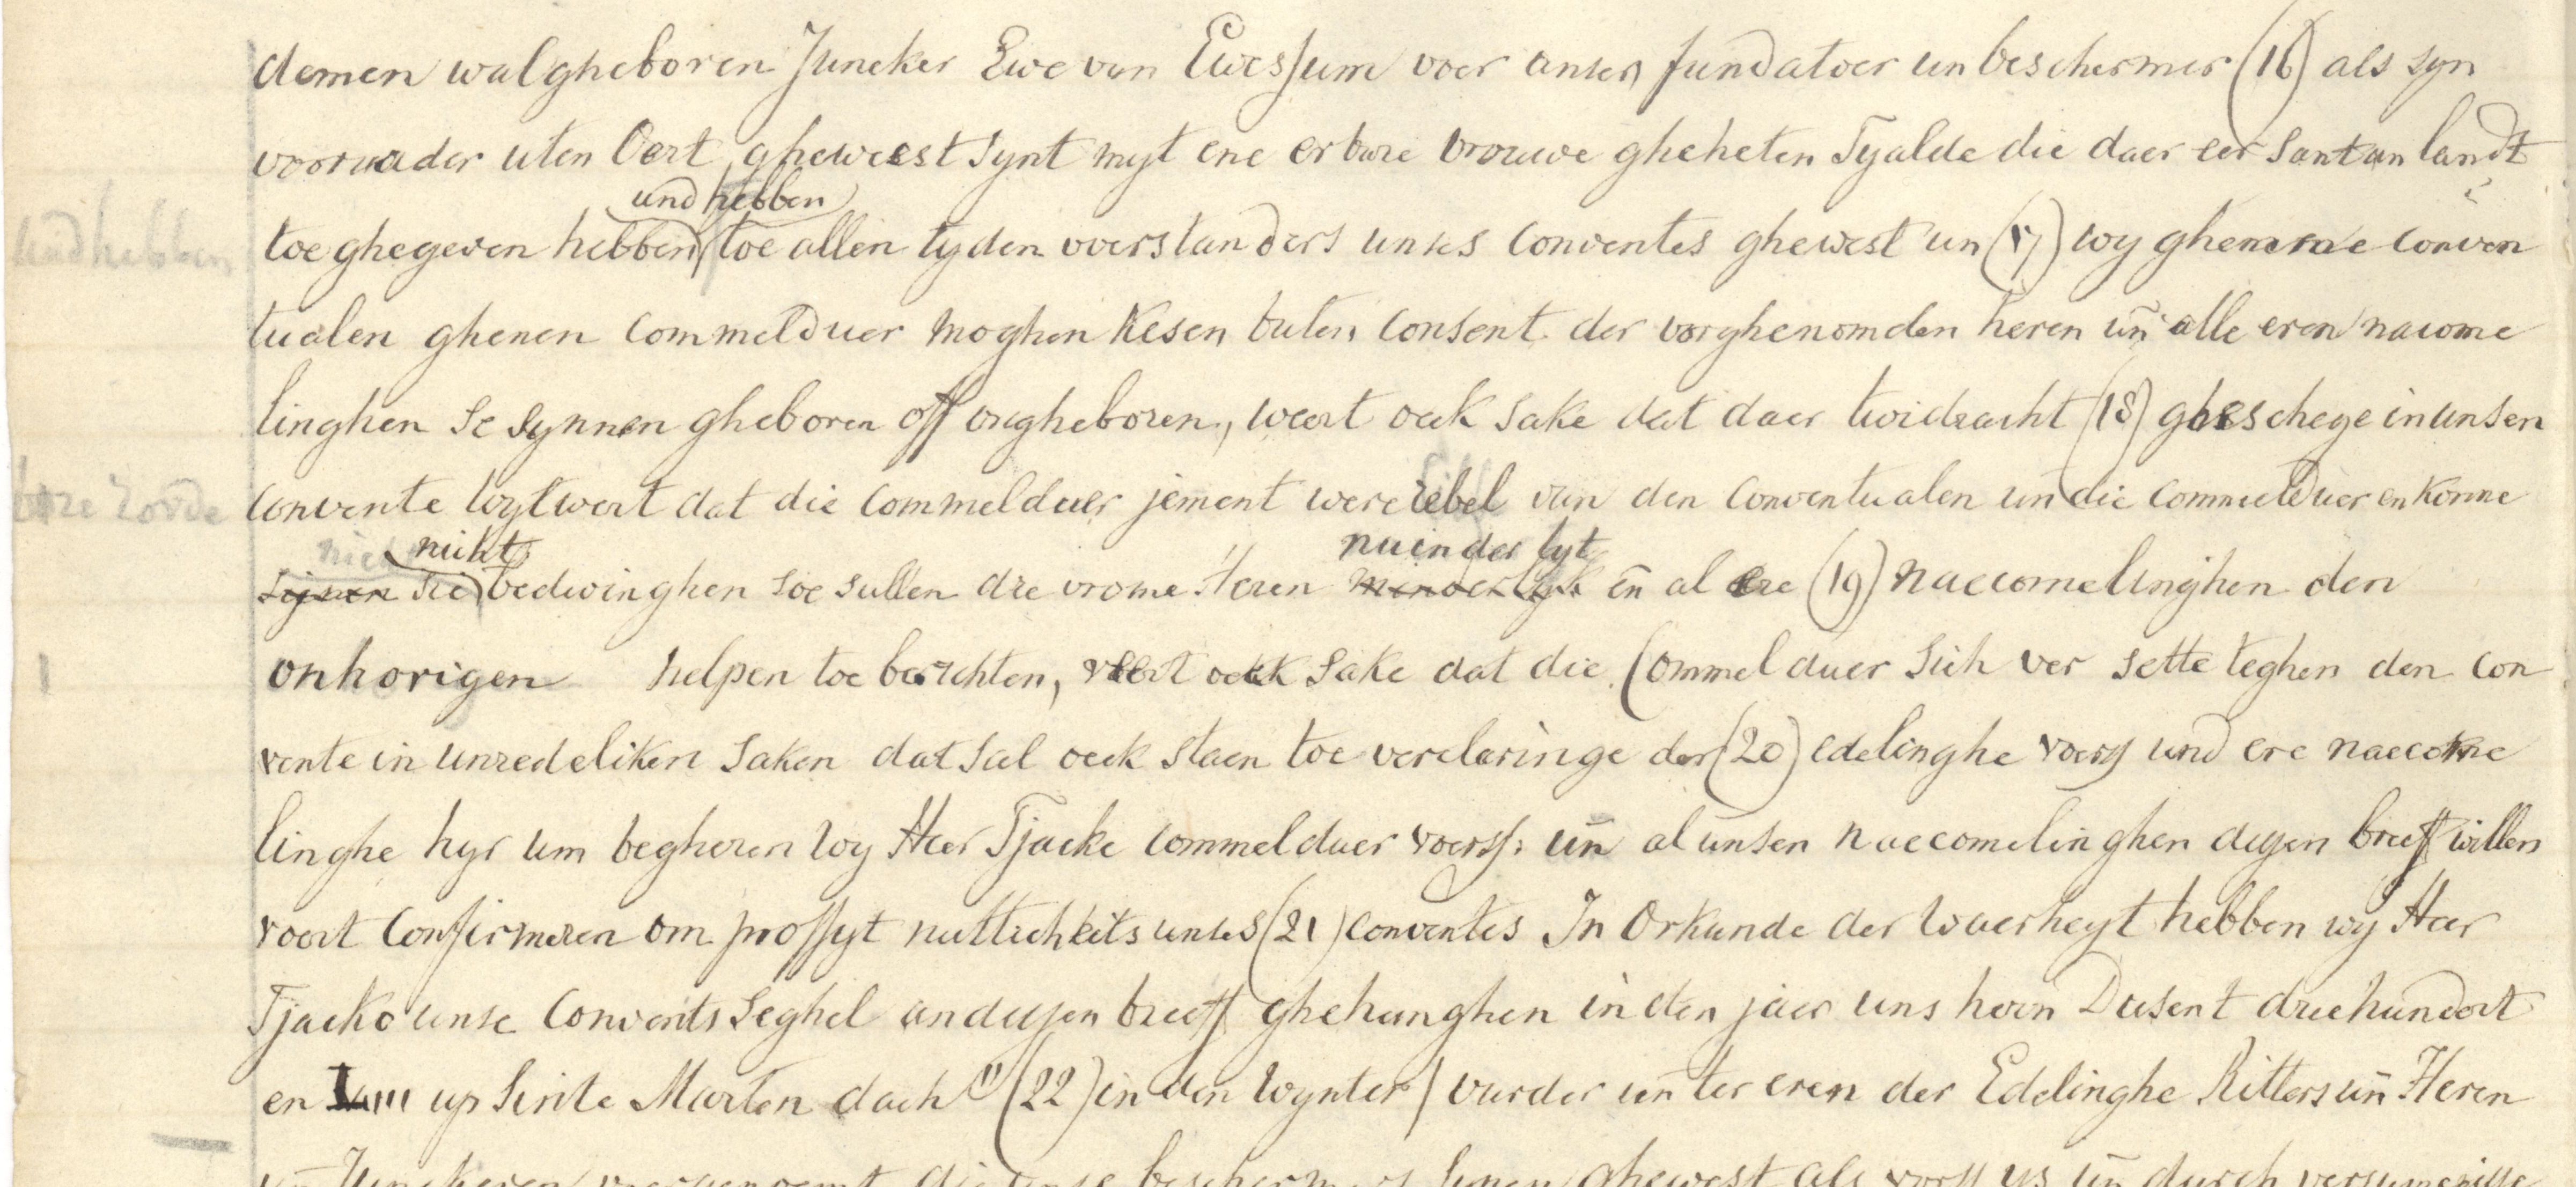 demen walgheboren Juncker Ewe van Ewessum voer unsen fundatoer un beschermer (16) als syn
voorvader uten Oert gheweest synt myt ene erbare vrouwe gheheten Tyalde die daer eer sant an landt
und hebben
toe ghegeven hebben toe allen tyden voerstanders unses Conventes ghewest un (17) wy ghemene Conven
und hebben
tualen ghenen Commelduer moghen kesen buten Consent der vorghenomden heren un̄ alle eren nacome
linghen Se synnen gheboren off ongheboren, weert oeck sake dat daer twidracht (18) gheschege in unsen
Convente wytwert dat die Commelduer jement were rebel van den Conventualen un̄ die Commelduer en konne
nicht nu in der tyt
sie bedwinghen soe sullen die vrome Heren en̄ al ere (19) naecomelinghen den
onhorigen helpen toe berichten, weert oeck sake dat die Commelduer sich ver sette teghen den Con
vente in unredeliken saken dat sal oeck staen toe verclaringe der (20) edelinghe voers und ere naecome
linghe hyr um begheren wy Heer Tjacke Commelduer voerss: un̄ al unsen naecomelinghen dessen breeff willen
voert Confirmeren om proffyt nuttichkeits unses (21) Conventes In Orkunde der waerheyt hebben wy Heer
Tjacko unse Convents seghel an dessen breeff ghehanghen in den jaer uns heren Dusent driehundert
en up Sinte Marten dach (22) in den wynter) vurder un ter eren der Edelinghe Ritters un̄ Heren
un̄ Junckeren die unse beschermers sinen ghewest als vorss ys un̄ durch versumenisse